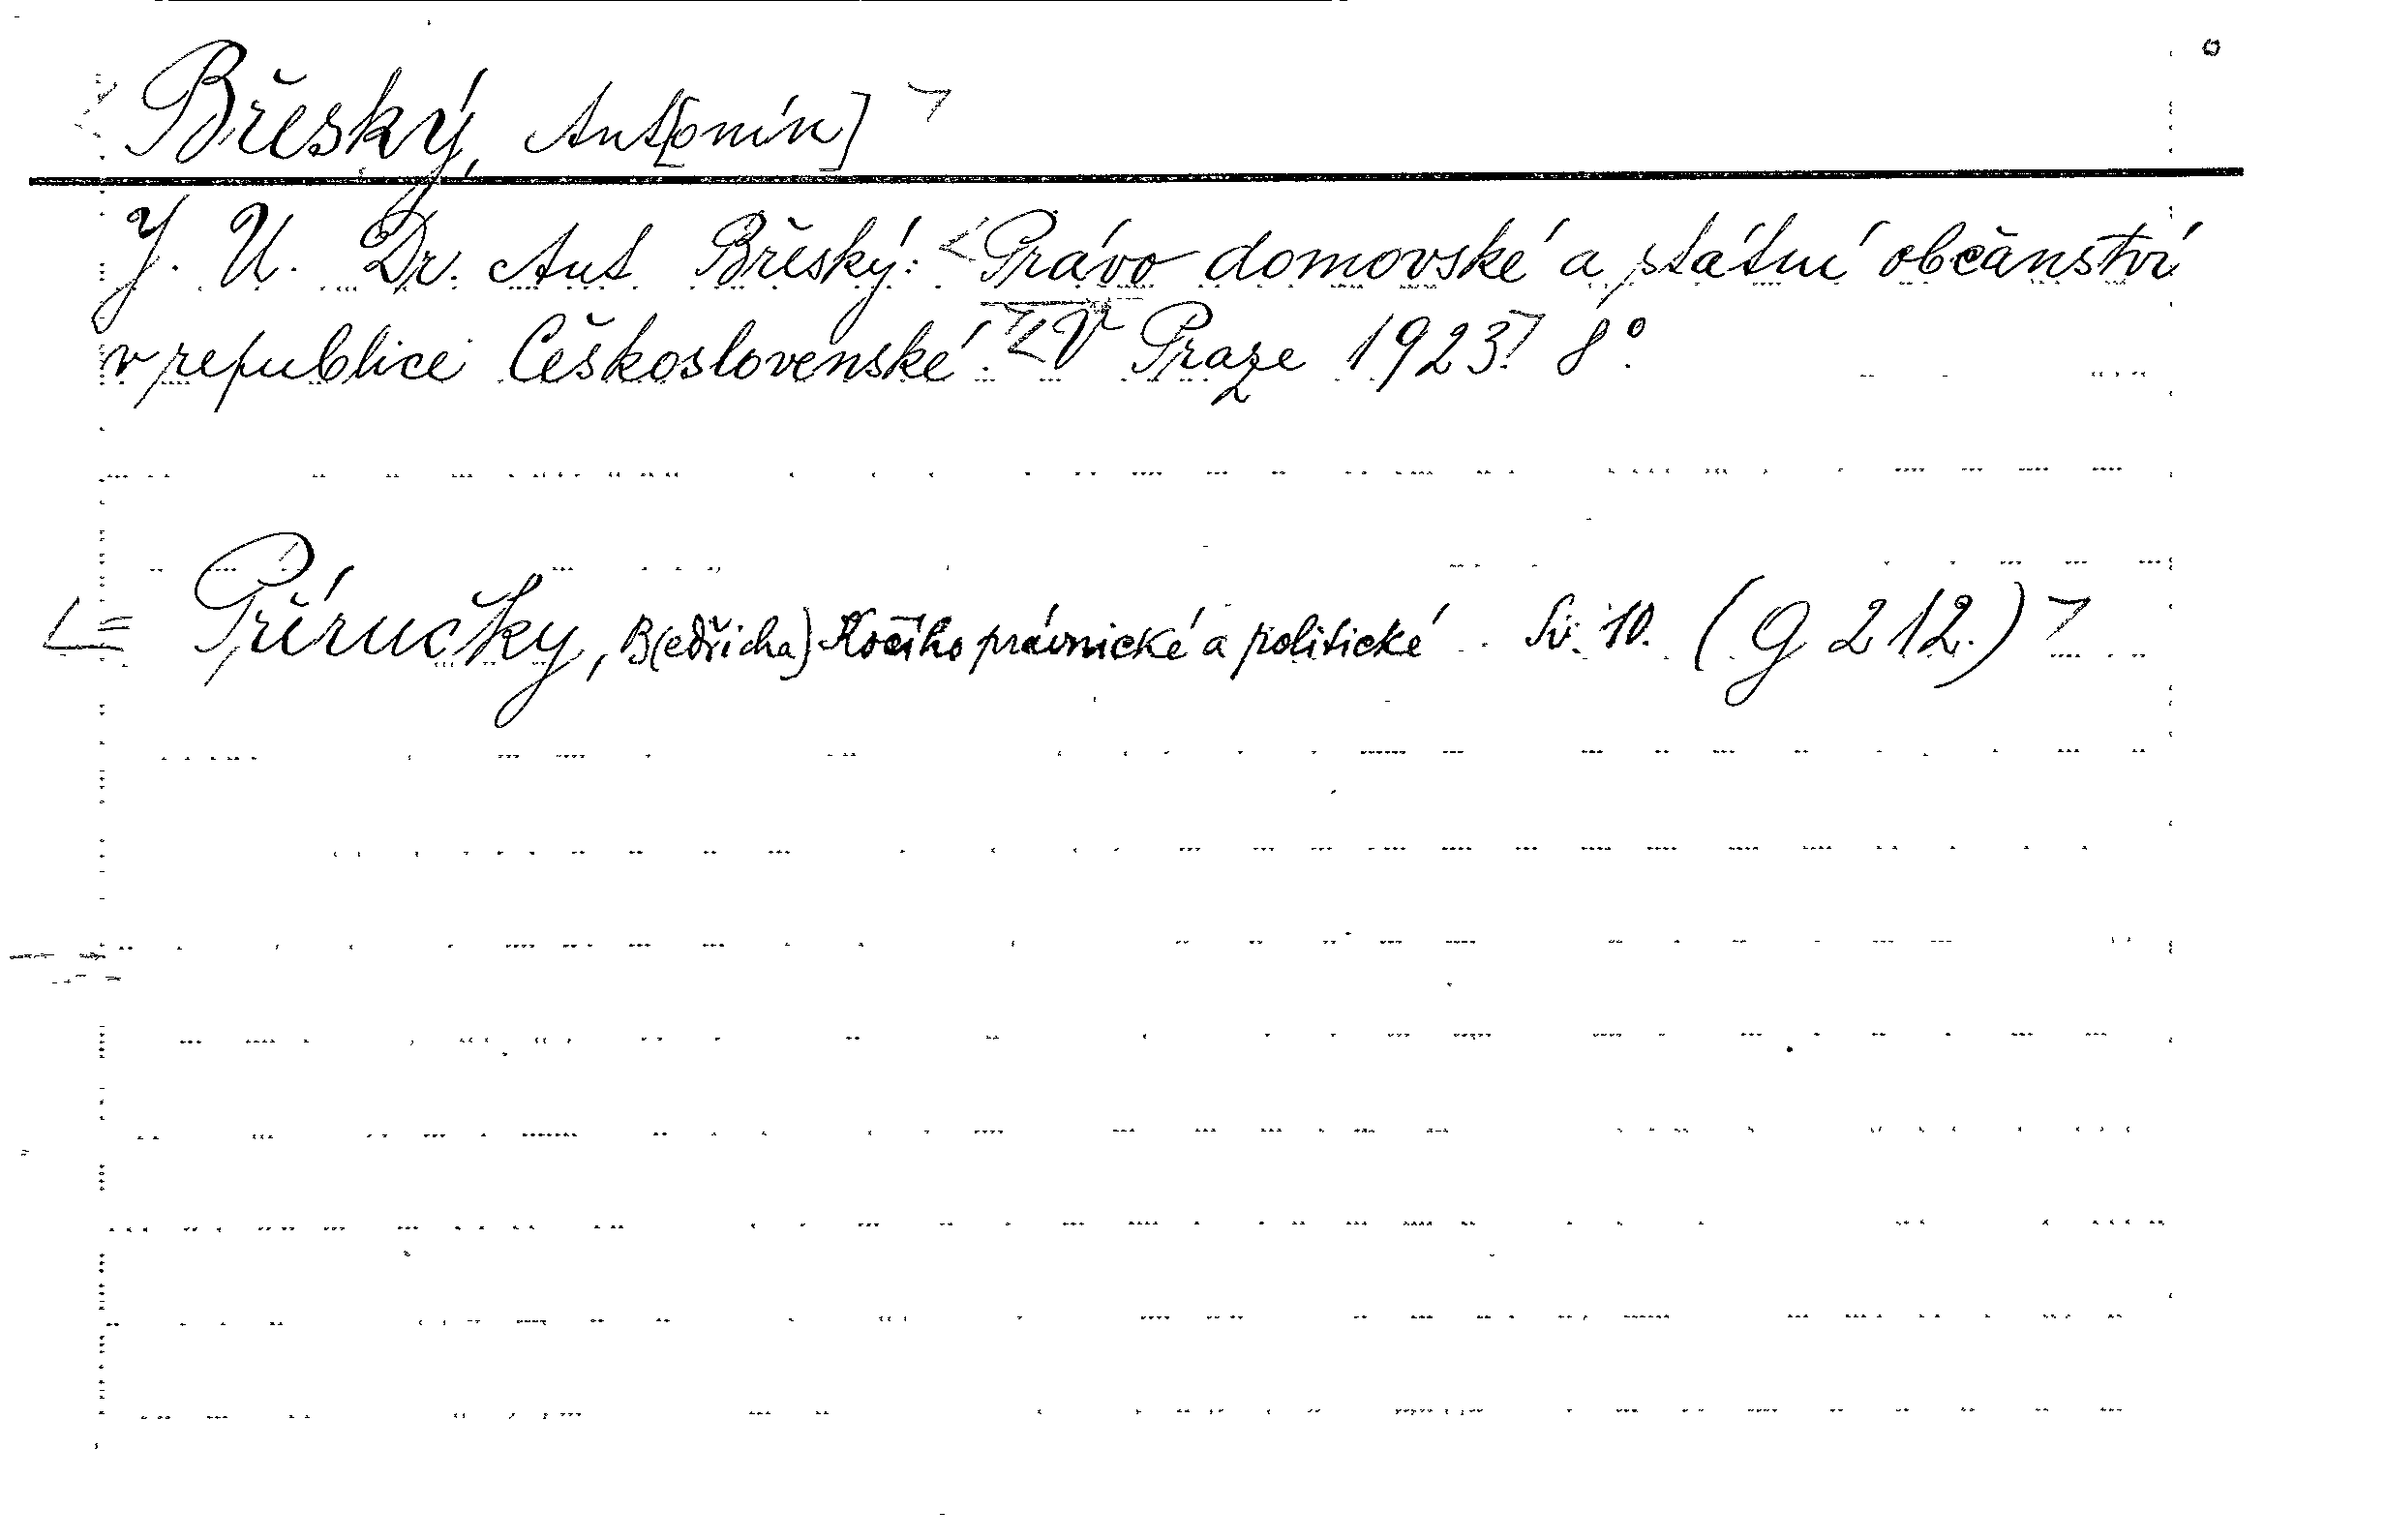 <Břeský, Ant[onín]>
J. U. Dr. Ant Břeský: <Právo domovské a státní občanství
v republice Československé.> <V Praze 1923.> 8°.
<= Příručky, B(edřicha) Kočího právnické a politické. Sv. 10. (G 212.)>